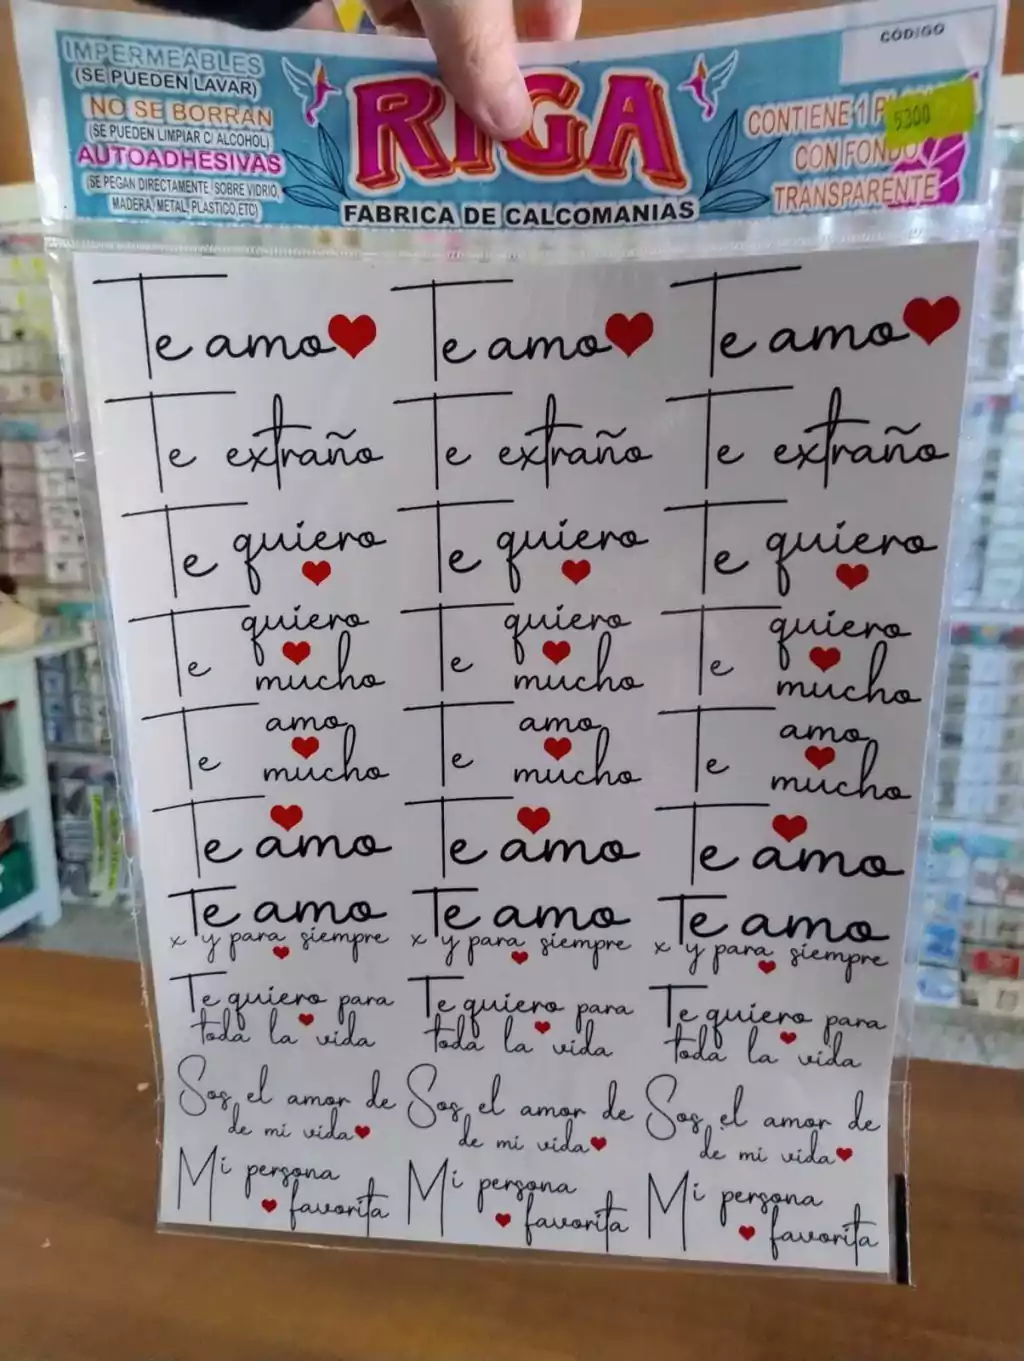 IMPERMEABLES
(SE PUEDEN LAVAR)
NO SE BORRAN
(SE PUEDEN LIMPIAR C/ ALCOHOL)
AUTOADHESIVAS
(SE PEGAN DIRECTAMENTE SOBRE VIDRIO,
MADERA, METAL, PLASTICO, ETC)
RIGA
FABRICA DE CALCOMANIAS
CÓDIGO
CONTIENE 1
5300
CON FONDO
TRANSPARENTE
Te amo Te amo Te amo
Te extraño Te extraño Te extraño
Te quiero Te quiero Te quiero
Te quiero mucho Te quiero mucho Te quiero mucho
Te amo mucho Te amo mucho Te amo mucho
Te amo Te amo Te amo
Te amo Te amo Te amo
x y para siempre x y para siempre x y para siempre
Te quiero para Te quiero para Te quiero para
toda la vida toda la vida toda la vida
Sos el amor de Sos el amor de Sos el amor de
de mi vida de mi vida de mi vida
Mi persona Mi persona Mi persona
favorita favorita favorita